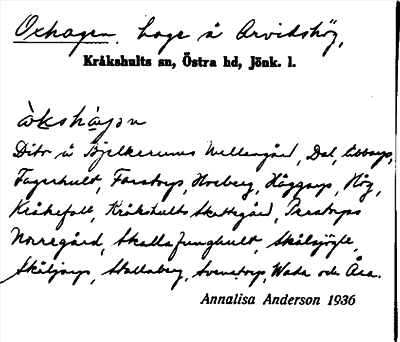 Oxhagen. Hage å Arvidshög,
Kråkshults sn, Östra hd, Jönk. l.
òkshà̱gən
Dito å Bjelkerums Mellangård, Dal,
Fagerhult, Farstorp, Hoeberg, Häggarp, Hög,
Kråkefall, Kråkshults Skattegård, Perstorps
Norregård, Skalla Ljunghult, Skälsjögle,
Skäljarp, Stallaberg, Svenstorp, Wata och Åsa.
Annalisa Anderson 1936